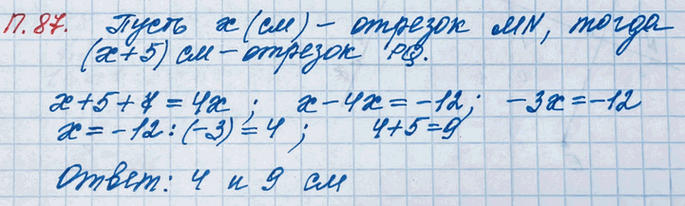 П. 87. Пусть x (см) – отрезок MN, тогда
(x+5) см – отрезок PQ.
x+5+7=4x; x-4x=-12; -3x=-12
x=-12:(-3)=4; 4+5=9
Ответ: 4 и 9 см